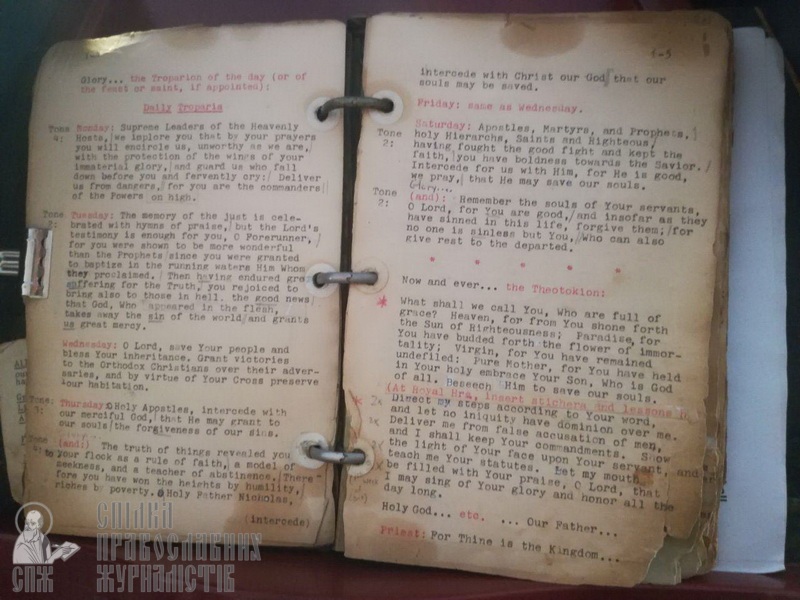 Glory... the Troparion of the day (or of
the feast or saint, if appointed):
Daily Troparia
Tone 4: Monday: Supreme Leaders of the Heavenly
Hosts, we implore you that by your prayers
you will encircle us, unworthy as we are,
with the protection of the wings of your
immaterial glory, and guard us who fall
down before you and fervently cry: Deliver
us from dangers, for you are the commanders
of the Powers on high.
Tone Tuesday: The memory of the just is cele-
brated with hymns of praise, but the Lord's
testimony is enough for you, O Forerunner,
for you were shown to be more wonderful
than the Prophets since you were granted
to baptize in the running waters Him Whom
they proclaimed. Then having endured
suffering for the Truth, you rejoiced to
bring also to those in hell the good news
that God, Who appeared in the flesh,
takes away the sin of the world and grants
us great mercy.
Wednesday: O Lord, save Your people and
bless Your inheritance. Grant victories
to the Orthodox Christians over their adver-
saries, and by virtue of Your Cross preserve
Your habitation.
Tone 3: Thursday: O Holy Apostles, intercede with
our merciful God, that He may grant to
our souls the forgiveness of our sins.
(and:) The truth of things revealed you
to your flock as a rule of faith, a model of
meekness, and a teacher of abstinence. There
fore you have won the heights by humility,
riches by poverty. O Holy Father Nicholas,
(intercede)
1-5
intercede with Christ our God that our
souls may be saved.
Friday: same as Wednesday.
Tone 2: Saturday: Apostles, Martyrs, and Prophets,
holy Hierarchs, Saints and Righteous
having fought the good fight and kept the
faith, you have boldness towards the Savior.
Intercede for us with Him, for He is good,
we pray, that He may save our souls.
Glory...
Tone 2: (and): Remember the souls of Your servants,
O Lord, for You are good, and insofar as they
have sinned in this life, forgive them; for
no one is sinless but You, Who can also
give rest to the departed.
* * * * *
Now and ever... the Theotokion:
* What shall we call You, Who are full of
grace? Heaven, for from You shone forth
the Sun of Righteousness; Paradise, for
You have budded forth the flower of immor-
tality; Virgin, for You have remained
undefiled; Pure Mother, for You have held
in Your holy embrace Your Son, Who is God
of all. Beseech Him to save our souls.
(At Royal Hrs, insert stichera and lessons
2x Direct my steps according to Your word,
and let no iniquity have dominion over me.
2x Deliver me from false accusation of men,
and I shall keep Your commandments. Show
the light of Your face upon Your servant, and
teach me Your statutes. Let my mouth
be filled with Your praise, O Lord, that
I may sing of Your glory and honor all the
day long.
Holy God... etc. ... Our Father...
Priest: For Thine is the Kingdom...
СПІЛКА
ПРАВОСЛАВНИХ
ЖУРНАЛІСТІВ
СПЖ